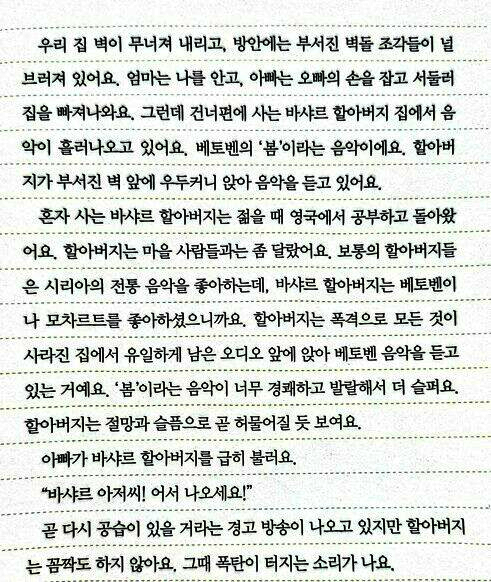 우리 집 벽이 무너져 내리고, 방안에는 부서진 벽돌 조각들이 널
브러져 있어요. 엄마는 나를 안고, 아빠는 오빠의 손을 잡고 서둘러
집을 빠져나와요. 그런데 건너편에 사는 바샤르 할아버지 집에서 음
악이 흘러나오고 있어요. 베토벤의 ‘봄’이라는 음악이에요. 할아버
지가 부서진 벽 앞에 우두커니 앉아 음악을 듣고 있어요.
혼자 사는 바샤르 할아버지는 젊을 때 영국에서 공부하고 돌아왔
어요. 할아버지는 마을 사람들과는 좀 달랐어요. 보통의 할아버지들
은 시리아의 전통 음악을 좋아하는데, 바샤르 할아버지는 베토벤이
나 모차르트를 좋아하셨으니까요. 할아버지는 폭격으로 모든 것이
사라진 집에서 유일하게 남은 오디오 앞에 앉아 베토벤 음악을 듣고
있는 거예요. ‘봄’이라는 음악이 너무 경쾌하고 발랄해서 더 슬퍼요.
할아버지는 절망과 슬픔으로 곧 허물어질 듯 보여요.
아빠가 바샤르 할아버지를 급히 불러요.
“바샤르 아저씨! 어서 나오세요!”
곧 다시 공습이 있을 거라는 경고 방송이 나오고 있지만 할아버지
는 꼼짝도 하지 않아요. 그때 폭탄이 터지는 소리가 나요.